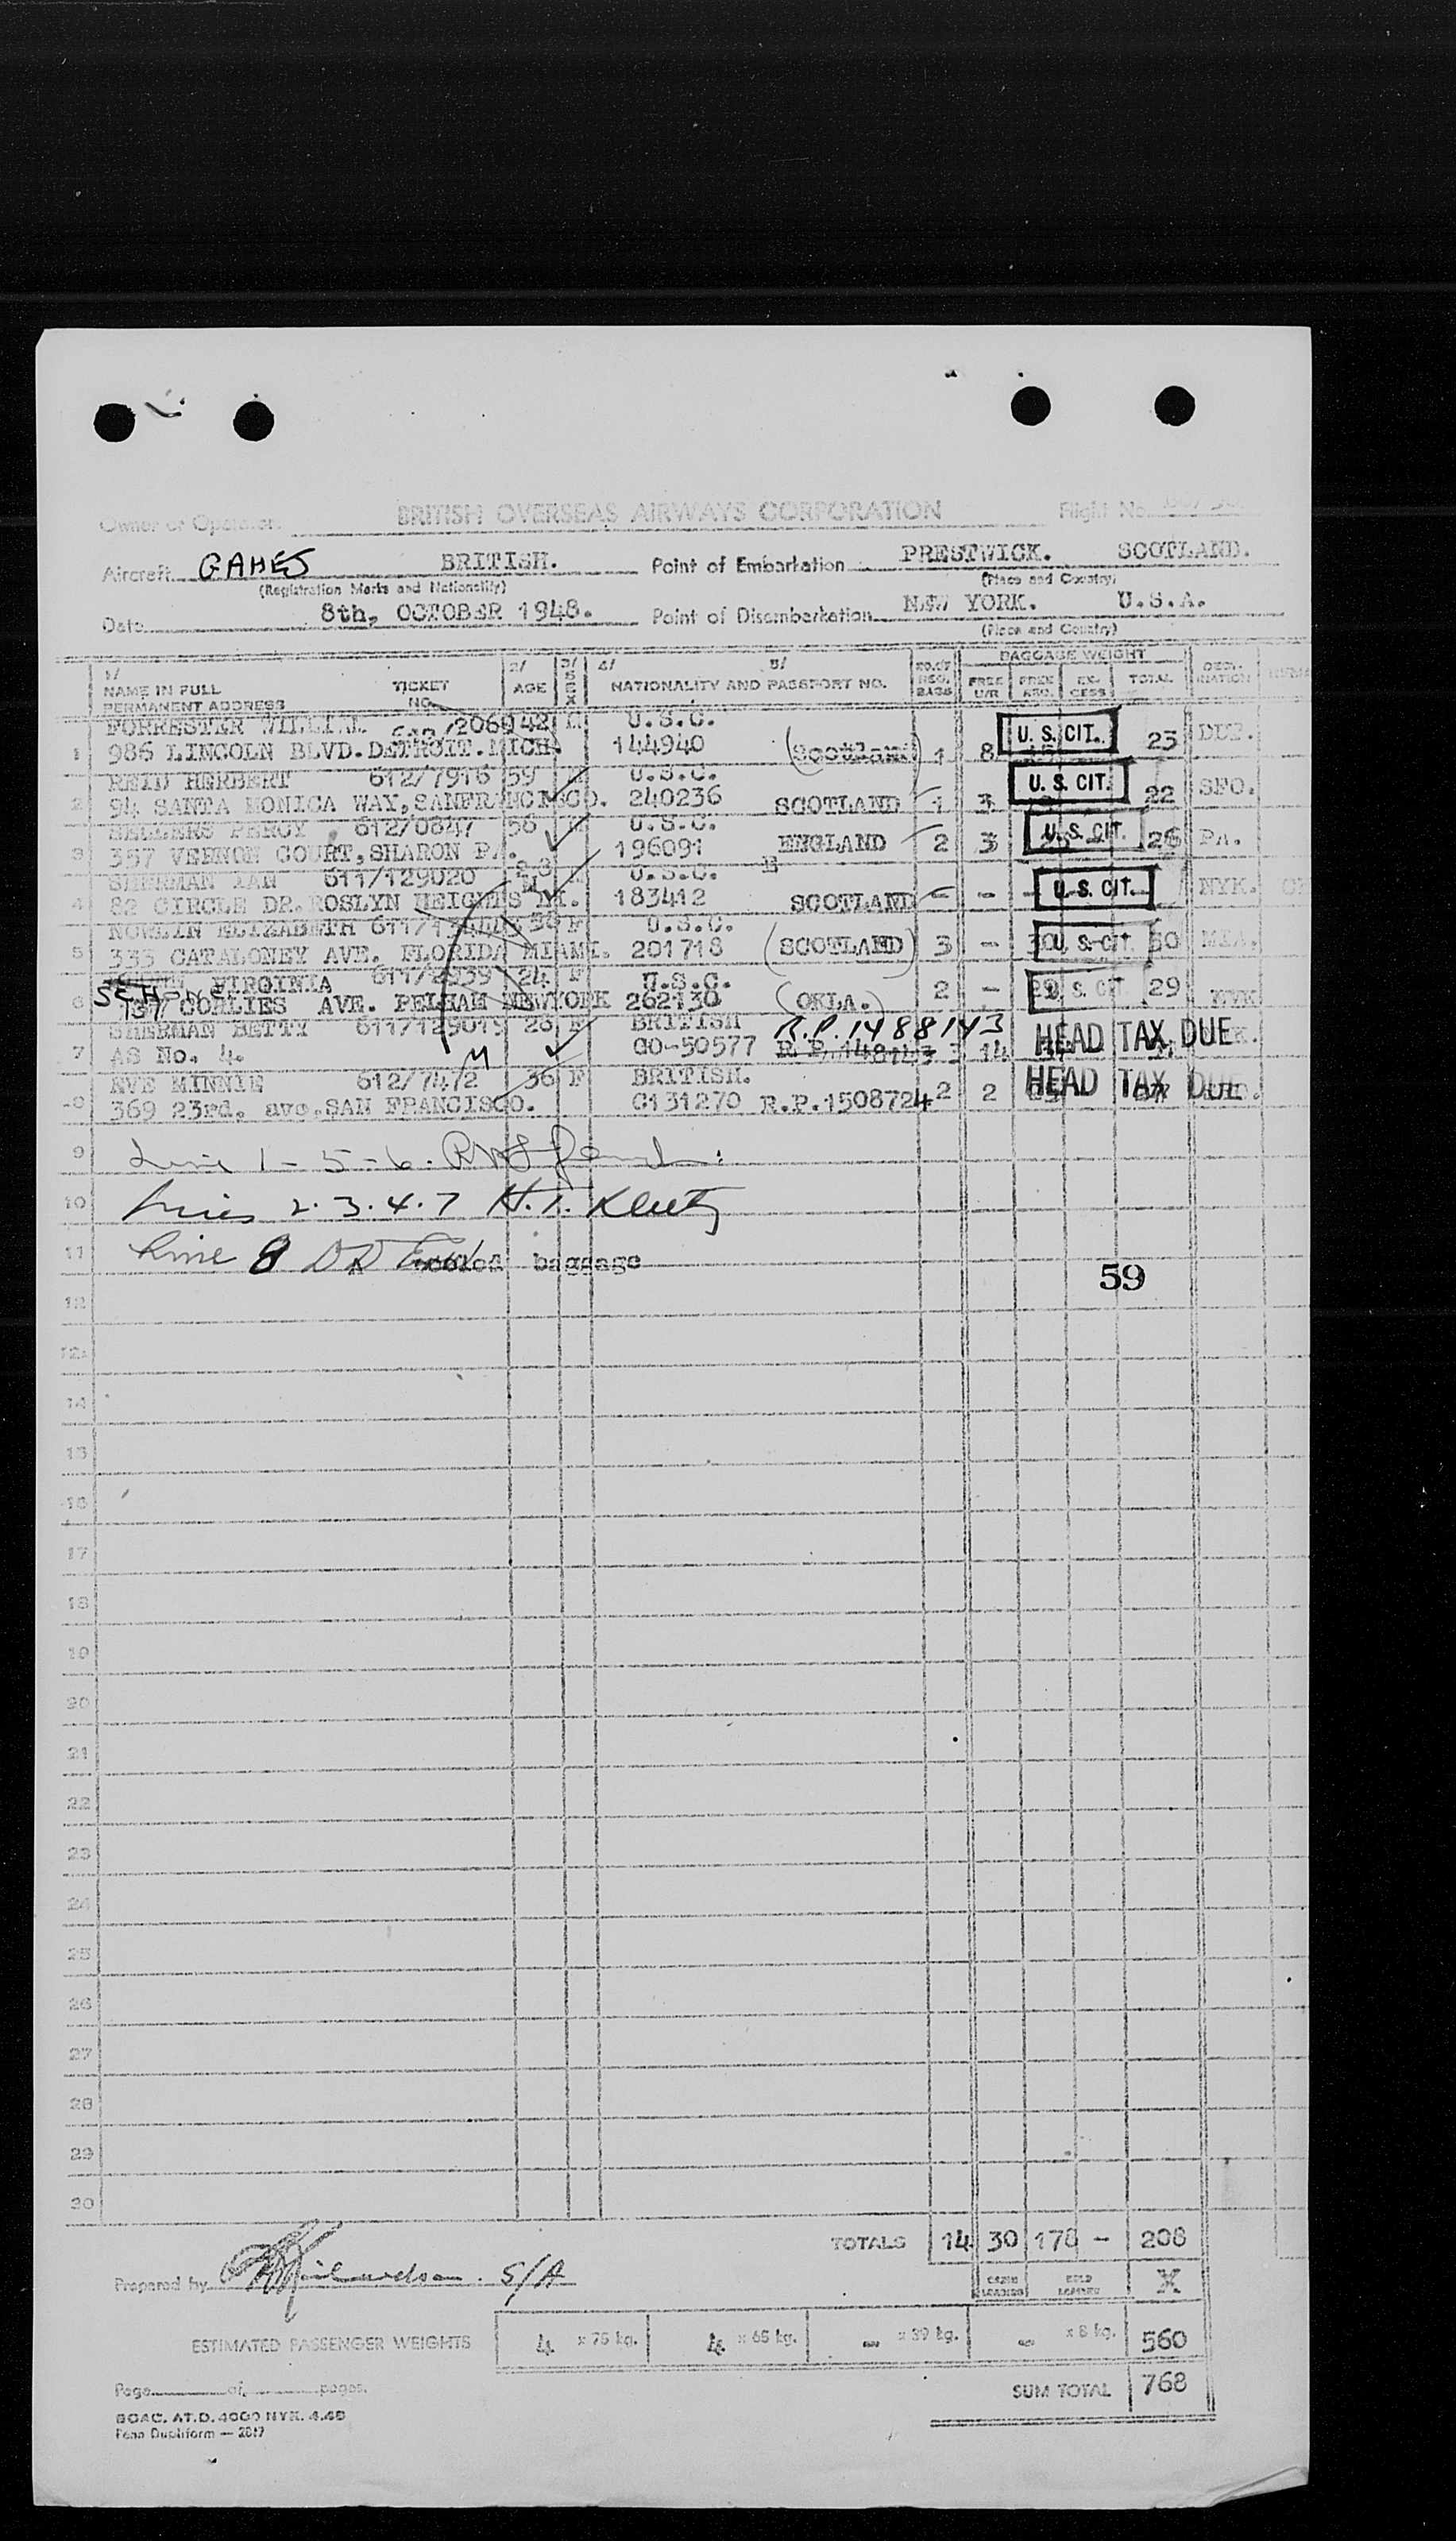 Owner or Operator BRITISH OVERSEAS AIRWAYS CORPORATION Flight No.
Aircraft GAHEJ BRITISH. Point of Embarkation PRESTWICK. SCOTLAND.
(Registration Marks and Nationality) (Place and Country)
Date 8th, OCTOBER 1948. Point of Disembarkation NEW YORK. U.S.A.
(Place and Country)
1/ 2/ 3/ 4/ 5/ BAGGAGE WEIGHT
NAME IN FULL TICKET NO. AGE SEX NATIONALITY AND PASSPORT NO. NO. OF REG. BAGS FREE U/R FREE REG. EX-CESS TOTAL DESTI-NATION
PERMANENT ADDRESS
FORRESTER 42 M U.S.C.
1 986 LINCOLN BLVD. DETROIT. MICH. 144940 (Scotland) 1 8 U. S. CIT. 23
REID HERBERT 612/7916 59 M U.S.C.
2 94 SANTA MONICA WAY, SANFRANCISCO. 240236 SCOTLAND 1 3 U. S. CIT. 22 SFO.
SELLERS PERCY 612/0847 56 M U.S.C.
3 357 VERNON COURT, SHARON PA. 196091 ENGLAND 2 3 U. S. CIT. 26 PA.
SHERMAN IAN 611/129020 M U.S.C.
4 82 CIRCLE DR. ROSLYN HEIGHTS 183412 SCOTLAND - - U. S. CIT. NYK.
NOWLIN ELIZABETH F U.S.C.
5 333 CATALONEY AVE. FLORIDA MIAMI. 201718 (SCOTLAND) 3 - U. S. CIT. MIA.
VIRGINIA 24 F U.S.C.
6 CORLIES AVE. PELHAM NEWYORK 262130 (OKLA.) 2 - U. S. CIT. 29 NYK
SHERMAN BETTY 611/129019 26 F BRITISH R.P. 1488143
7 AS No. 4. 3 14 HEAD TAX DUE
EVE MINNIE 612/7472 36 F BRITISH.
8 369 23rd. ave. SAN FRANCISCO. C131270 R.P.1508724 2 2 HEAD TAX DUE
9 Line 1 - 5 - 6.
10 Lines 2. 3. 4. 7
11 Line 8 baggage
59
12
14
15
16
17
18
19
20
21
22
23
24
25
26
27
28
29
30
TOTALS 14 30 178 - 208
Prepared by S/A CABIN LOADING HOLD LOADING X
ESTIMATED PASSENGER WEIGHTS 4 x 75 kg. 4 x 65 kg. - x 39 kg. - x 8 kg. 560
Page of pages. SUM TOTAL 768
BOAC. AT.D. 4000 NYK. 4.48
Penn Dupliform — 2817